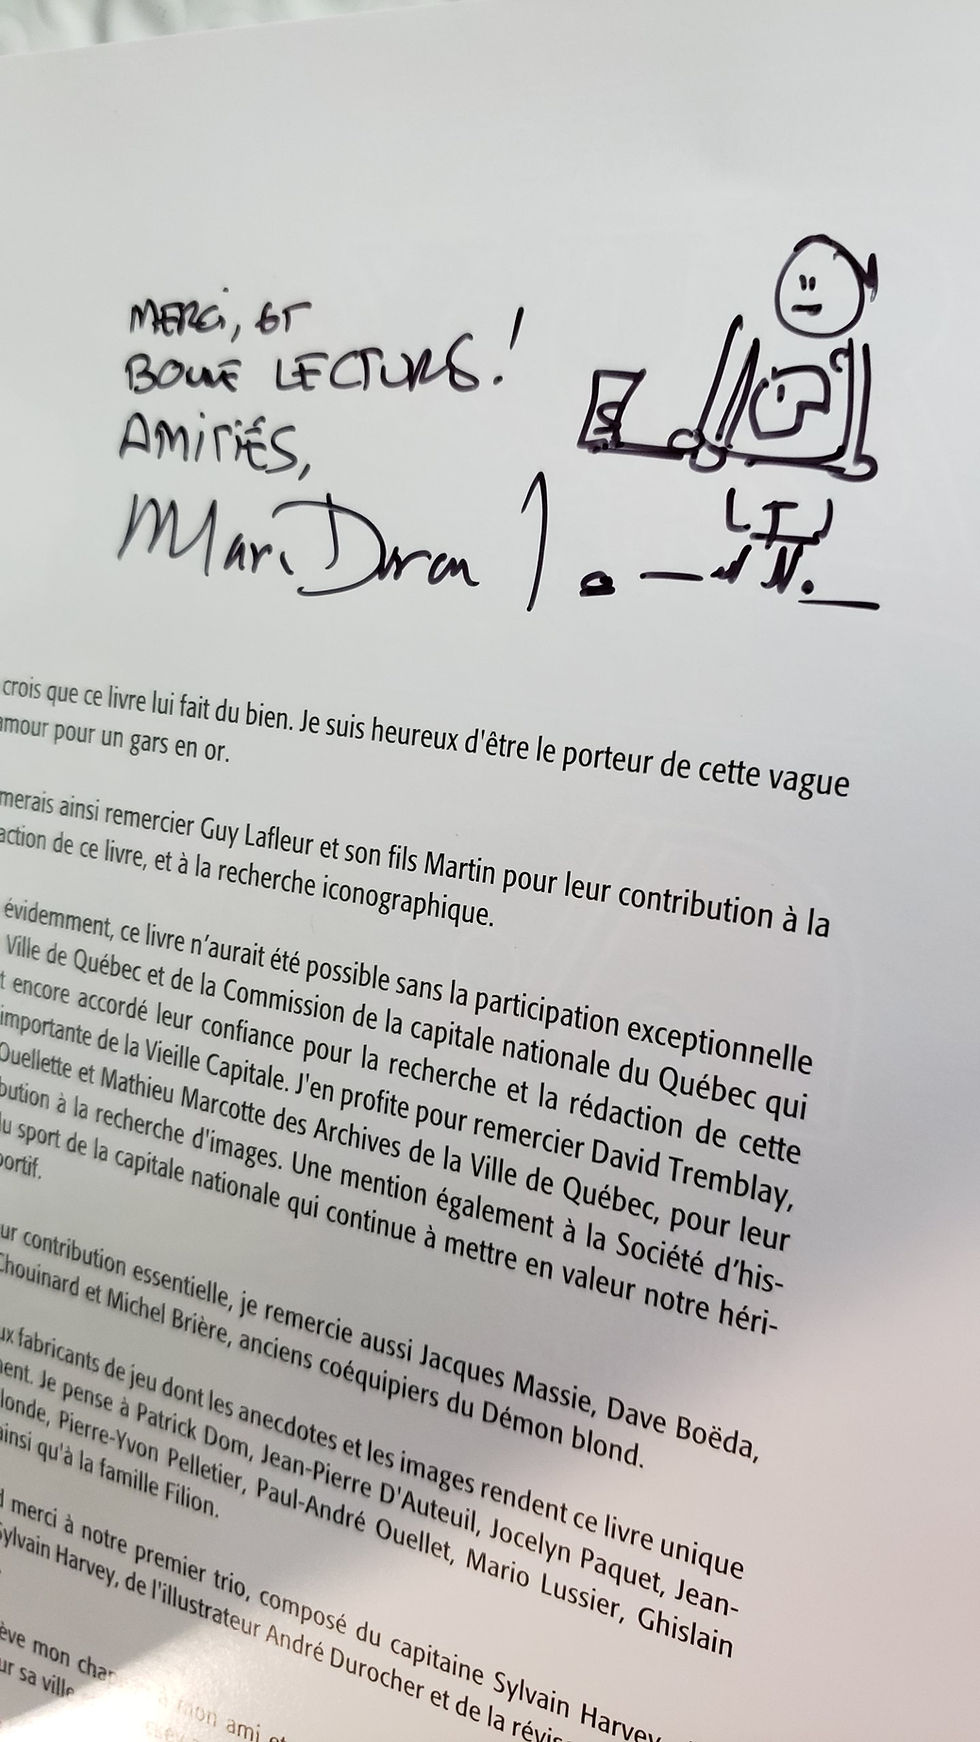 MERCI, ET
BONNE LECTURE!
AMITIÉS,
Marc Durand
crois que ce livre lui fait du bien. Je suis heureux d'être le porteur de cette vague
amour pour un gars en or.
merais ainsi remercier Guy Lafleur et son fils Martin pour leur contribution à la
action de ce livre, et à la recherche iconographique.
évidemment, ce livre n'aurait été possible sans la participation exceptionnelle
Ville de Québec et de la Commission de la capitale nationale du Québec qui
t encore accordé leur confiance pour la recherche et la rédaction de cette
importante de la Vieille Capitale. J'en profite pour remercier David Tremblay,
Ouellette et Mathieu Marcotte des Archives de la Ville de Québec, pour leur
bution à la recherche d'images. Une mention également à la Société d'his-
du sport de la capitale nationale qui continue à mettre en valeur notre héri-
portif.
ur contribution essentielle, je remercie aussi Jacques Massie, Dave Boëda,
Chouinard et Michel Brière, anciens coéquipiers du Démon blond.
ux fabricants de jeu dont les anecdotes et les images rendent ce livre unique
ment. Je pense à Patrick Dom, Jean-Pierre D'Auteuil, Jocelyn Paquet, Jean-
londe, Pierre-Yvon Pelletier, Paul-André Ouellet, Mario Lussier, Ghislain
ainsi qu'à la famille Filion.
d merci à notre premier trio, composé du capitaine Sylvain Harvey,
Sylvain Harvey, de l'illustrateur André Durocher et de la révis
ève mon chap mon ami et
ur sa ville